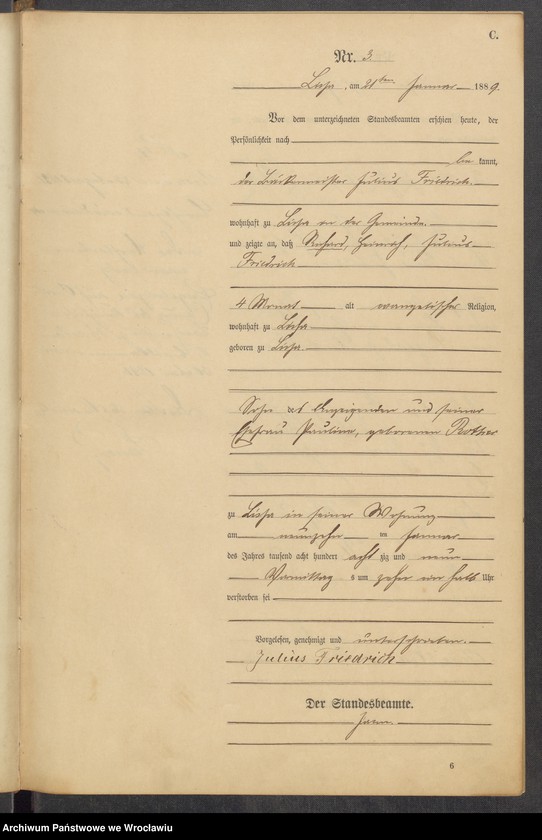 C.
Nr. 3
Lissa, am 21ten Januar 1889.
Vor dem unterzeichneten Standesbeamten erschien heute, der
Persönlichkeit nach
be kannt,
der Bäckermeister Julius Friedrich
wohnhaft zu Lissa in der Gemeinde
und zeigte an, daß Richard, Heinrich, Julius
Friedrich
4 Monat alt evangelischer Religion,
wohnhaft zu Lissa
geboren zu Lissa
Sohn des Anzeigenden und seiner
Ehefrau Pauline, geborenen Rother
zu Lissa in seiner Wohnung
am neunzehn ten Januar
des Jahres tausend acht hundert acht zig und neun
Vormittags um zehn ein halb Uhr
verstorben sei
Vorgelesen, genehmigt und unterschrieben.
Julius Friedrich
Der Standesbeamte.
6
Archiwum Państwowe we Wrocławiu